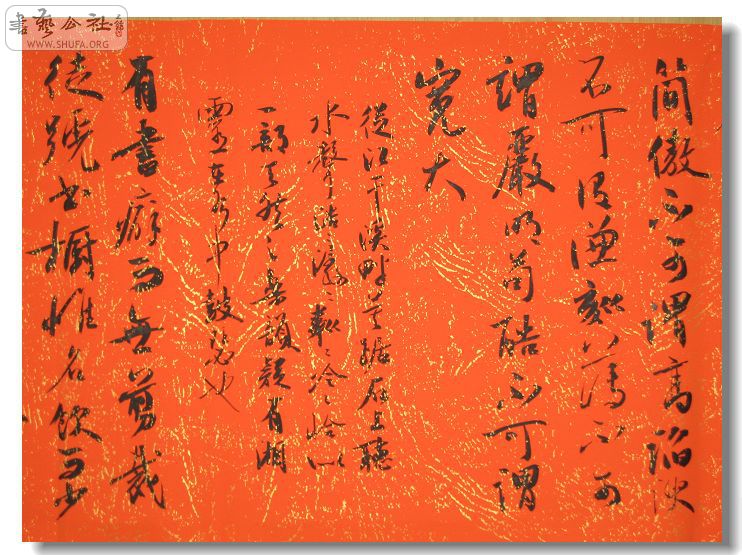 書藝公社
WWW.SHUFA.ORG
簡傲不可謂高諂諛
不可謂謙刻薄不可
謂嚴明苟酷不可謂
寬大
從江干溪畔箕踞石上聽
水聲浩潺々粼々泠々恰似
一部天然之樂韻疑有湘
靈在水中鼓瑟也
有書癖而無剪裁
徒號書櫥惟名飲而少